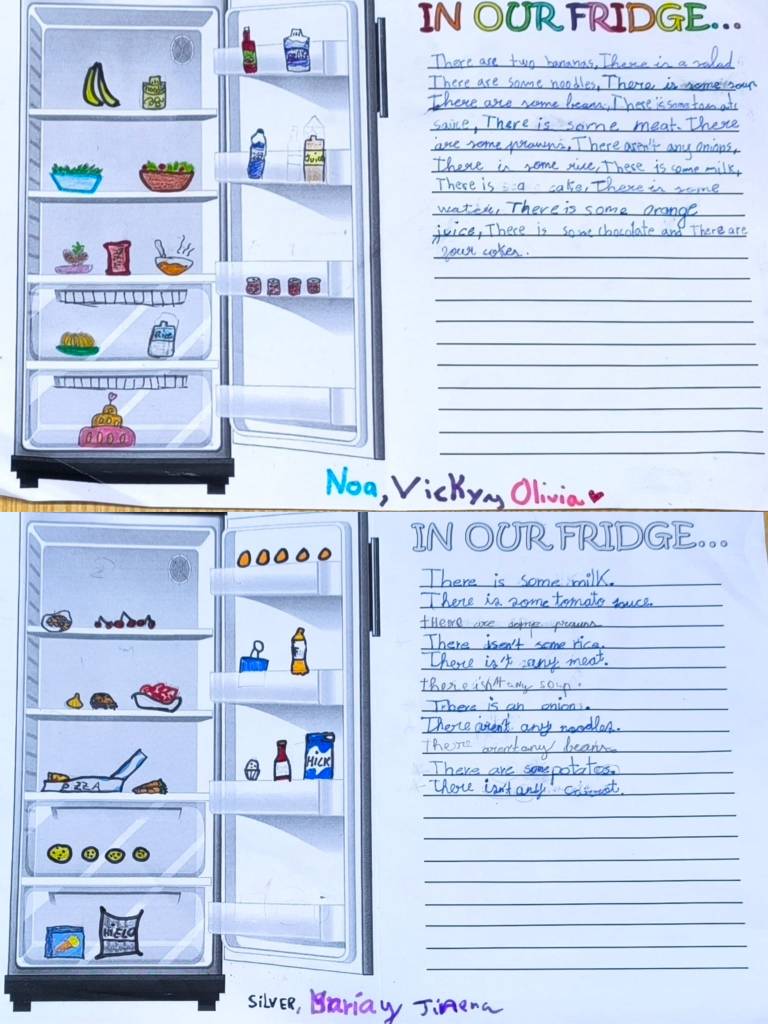 IN OUR FRIDGE...
There are two bananas, There is a salad
There are some noodles, There is some soup
There are some beans, There is some tomato
sauce, There is some meat. There
are some prawns, There aren't any onions,
There is some rice, There is some milk,
There is a cake, There is some
water, There is some orange
juice, There is some chocolate and There are
four cokes.
Juice
Rice
Noa, Vicky y Olivia
IN OUR FRIDGE...
There is some milk.
There is some tomato sauce.
there are some prawns
There isen't some rice.
There is't any meat.
there isn't any soup.
There is an onion.
There aren't any noodles.
There aren't any beans.
There are some potatos.
There isn't any
MILK
PIZZA
HiELO
SILVER, María y Jimena